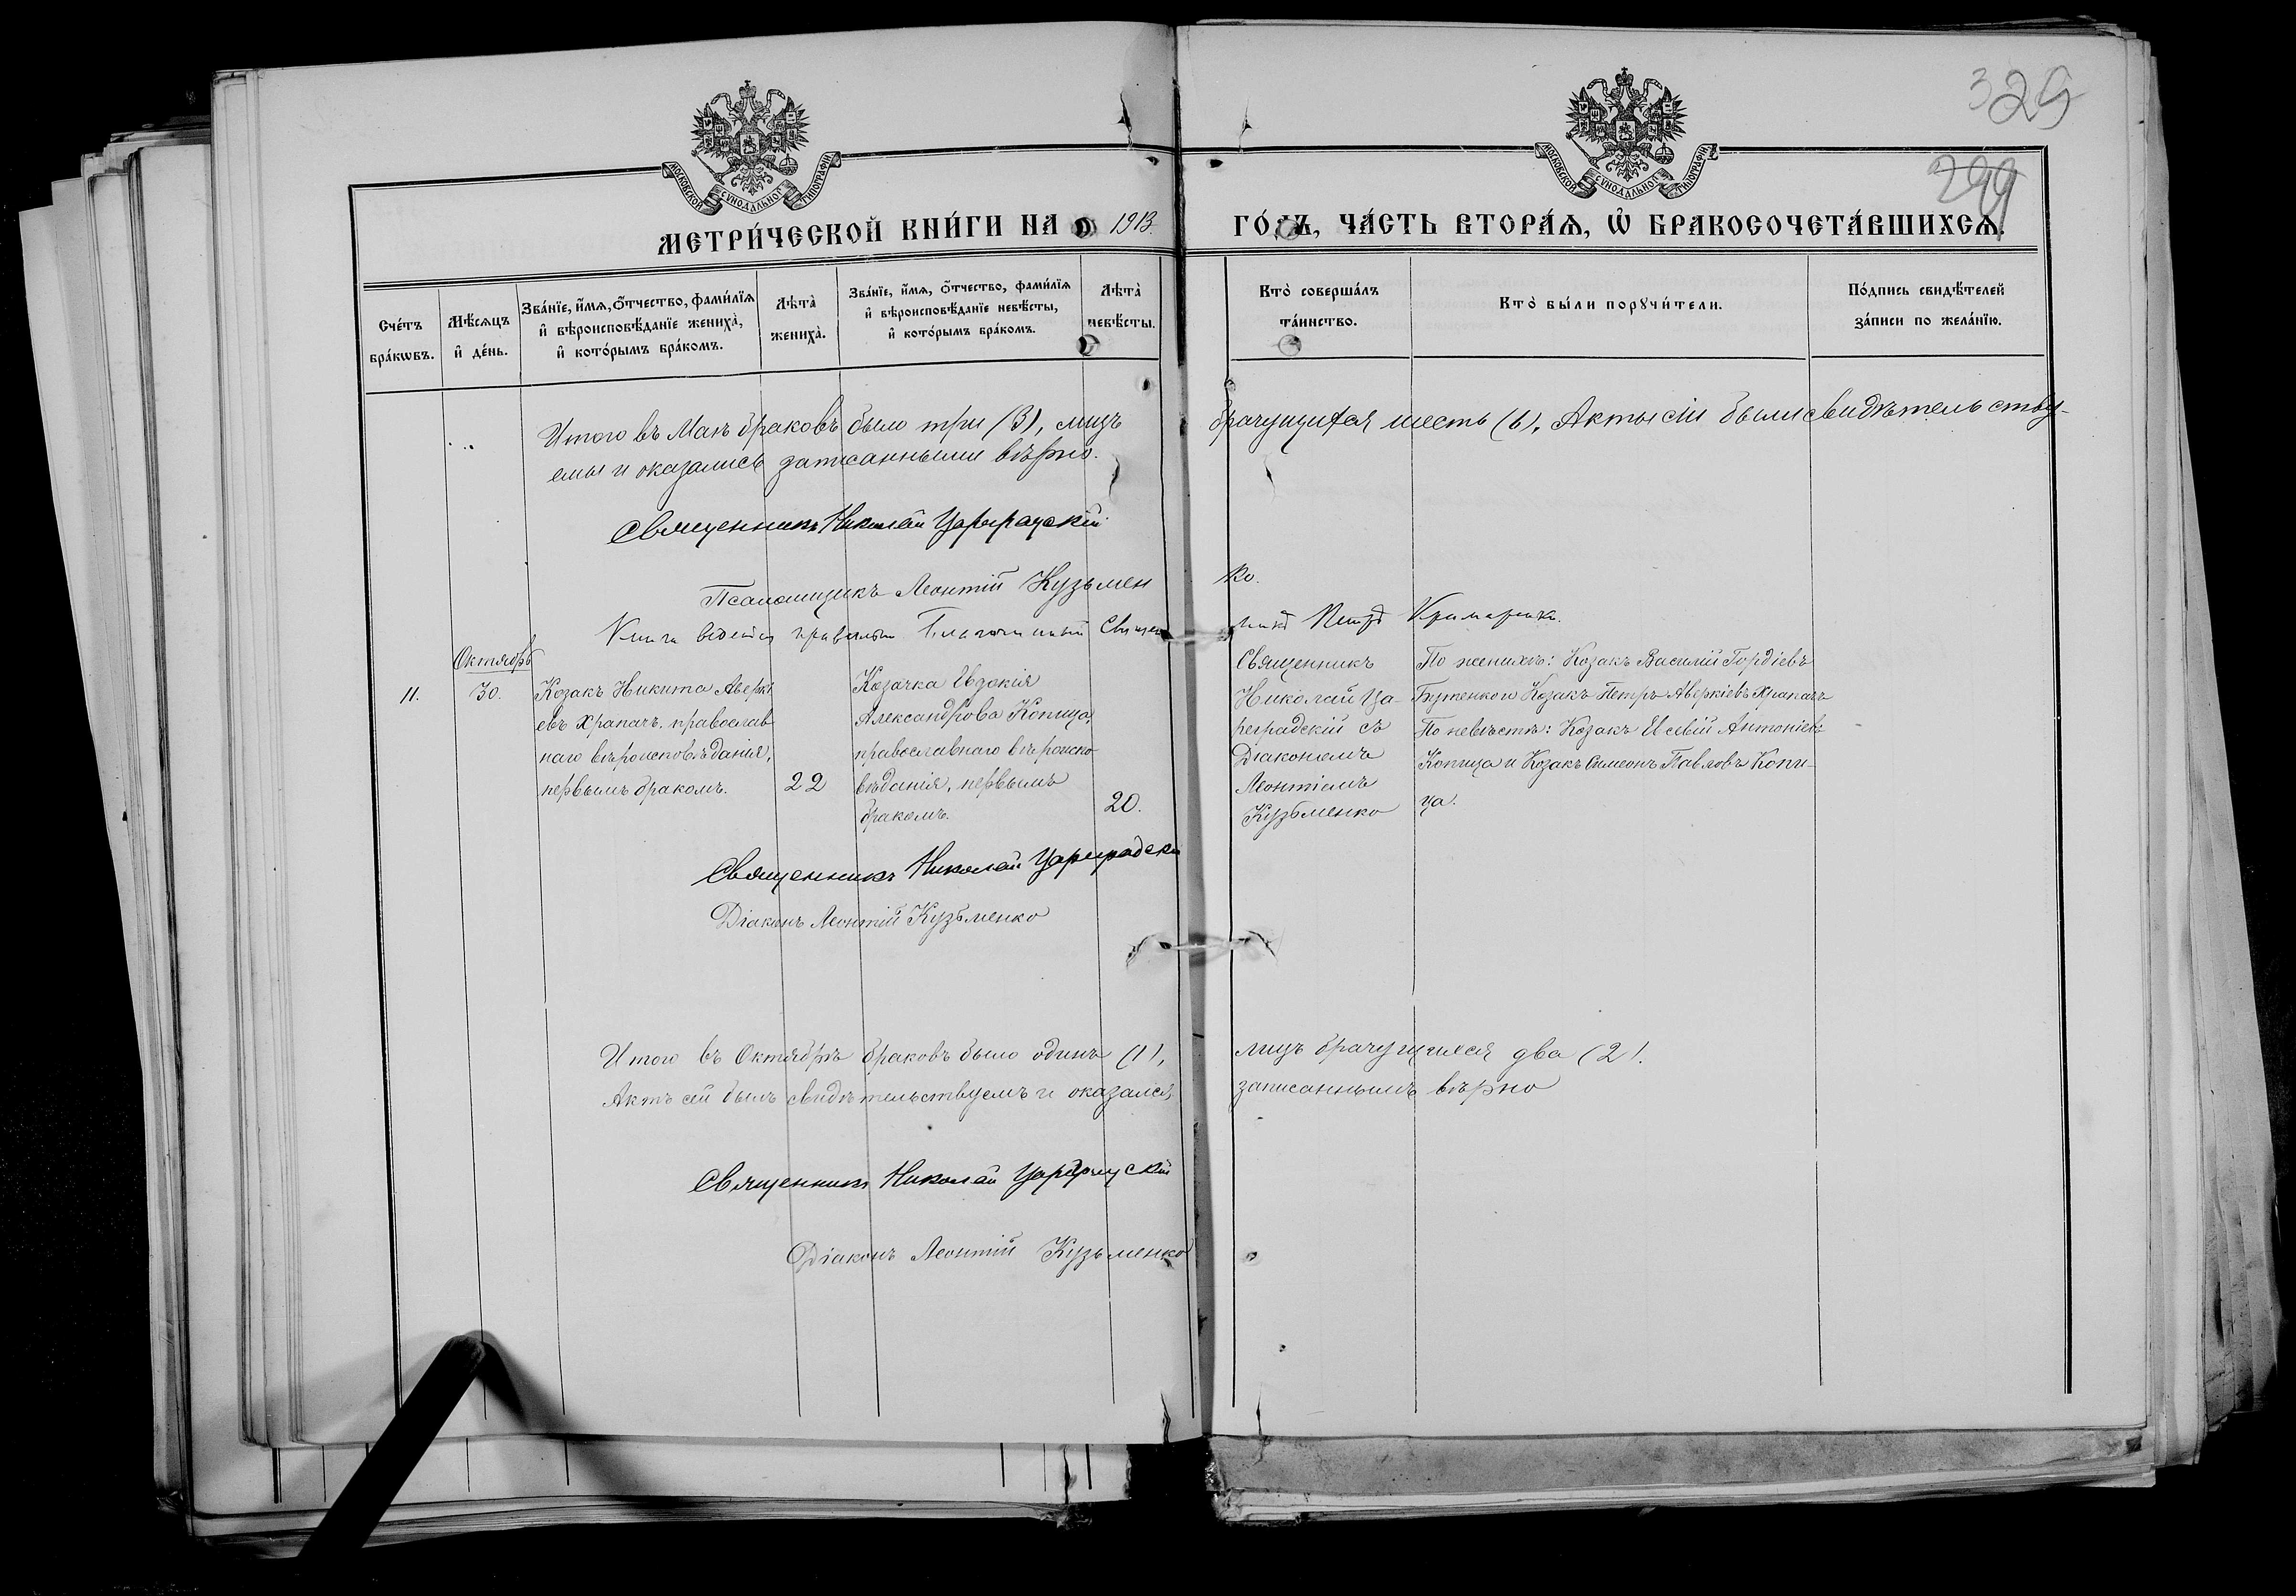 329
299
МОСКОВСКОЙ СѴНОДАЛЬНОЙ ТИПОГРАФІИ
МОСКОВСКОЙ СѴНОДАЛЬНОЙ ТИПОГРАФІИ
МЕТРИ́ЧЕСКОЙ КНИ́ГИ НА 1913. ГО́ДЪ, ЧА́СТЬ ВТОРА́Ѧ, Ѡ БРАКОСОЧЕТА́ВШИХСѦ.
Сче́тъ
бра́кѡвъ.
Мѣ́сѧцъ
и҆ де́нь.
Зва́нїе, и҆́мѧ, ѻ҆́тчество, фами́лїѧ
и҆ вѣроисповѣ́данїе жениха̀,
и҆ кото́рымъ бра́комъ.
Лѣта̀
жениха̀.
Зва́нїе, и҆́мѧ, ѻ҆́тчество, фами́лїѧ
и҆ вѣроисповѣ́данїе невѣ́сты,
и҆ кото́рымъ бра́комъ.
Лѣта̀
невѣ́сты.
Кто̀ соверша́лъ
та́инство.
Кто̀ бы́ли порꙋчи́тели.
По́дпись свидѣ́телей
за́писи по жела́нїю.
Итого въ Маѣ браковъ было три (3), лицъ брачущихся шесть (6), Акты сіи были свидѣтельству-
емы и оказались записанными вѣрно.
Священникъ Николай Цареградскій
Псаломщикъ Леонтій Кузьменко.
Книга ведется правильно Благочинный Священникъ Петръ
Октябрь
11.
30.
Козакъ Никита Аверкі
евъ Храпачъ, православ
наго вѣроисповѣданія,
первымъ бракомъ.
22
Козачка Евдокія
Александрова Копица,
православнаго вѣроиспо
вѣданія, первымъ
бракомъ.
20.
Священникъ
Николай Ца-
реградскій съ
Діакономъ
Леонтіемъ
Кузьменко
По женихѣ: Козакъ Василій Гордіевъ
Бутенко и Козакъ Петръ Аверкіевъ Храпачъ
По невѣстѣ: Козакъ Антоніевъ
Копица и Козакъ Симеонъ Павловъ Копи-
ца.
Священникъ Николай Цареградскі
Діаконъ Леонтій Кузьменко
Итого въ Октябрѣ браковъ было одинъ (1), лицъ брачущихся два (2).
Актъ сей былъ свидѣтельствуемъ и оказался записаннымъ вѣрно
Священникъ Николай Цареградскій
Діаконъ Леонтій Кузьменко